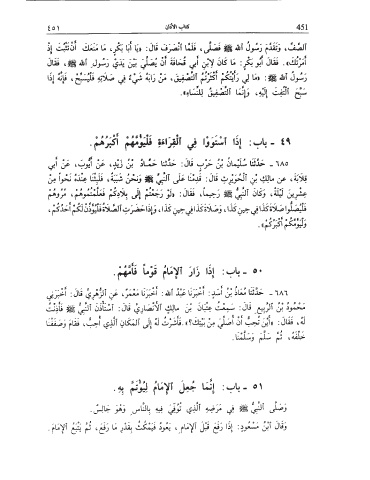 ٤٥١ كتاب الأذان 451
الصَّفِّ، وَتَقَدَّمَ رَسُولُ اللهِ ﷺ فَصَلَّى، فَلَمَّا انْصَرَفَ قَالَ: «يَا أَبَا بَكْرٍ، مَا مَنَعَكَ أَنْ تَثْبُتَ إِذْ
أَمَرْتُكَ». فَقَالَ أَبُو بَكْرٍ: مَا كَانَ لِابْنِ أَبِي قُحَافَةَ أَنْ يُصَلِّيَ بَيْنَ يَدَيْ رَسُولِ اللهِ ﷺ، فَقَالَ
رَسُولُ اللهِ ﷺ: «مَا لِي رَأَيْتُكُمْ أَكْثَرْتُمُ التَّصْفِيقَ، مَنْ رَابَهُ شَيْءٌ فِي صَلَاتِهِ فَلْيُسَبِّحْ، فَإِنَّهُ إِذَا
سَبَّحَ الْتُفِتَ إِلَيْهِ، وَإِنَّمَا التَّصْفِيقُ لِلنِّسَاءِ».
٤٩ - باب: إِذَا اسْتَوَوْا فِي الْقِرَاءَةِ فَلْيَؤُمَّهُمْ أَكْبَرُهُمْ.
٦٨٥ - حَدَّثَنَا سُلَيْمَانُ بْنُ حَرْبٍ قَالَ: حَدَّثَنَا حَمَّادُ بْنُ زَيْدٍ، عَنْ أَيُّوبَ، عَنْ أَبِي
قِلَابَةَ، عن مالِكِ بْنِ الْحُوَيْرِثِ قَالَ: قَدِمْنَا عَلَى النَّبِيِّ ﷺ وَنَحْنُ شَبَبَةٌ، فَلَبِثْنَا عِنْدَهُ نَحْوًا مِنْ
عِشْرِينَ لَيْلَةً، وَكَانَ النَّبِيُّ ﷺ رَحِيماً، فَقَالَ: «لَوْ رَجَعْتُمْ إِلَى بِلَادِكُمْ فَعَلَّمْتُمُوهُمْ، مُرُوهُمْ
فَلْيُصَلُّوا صَلَاةَ كَذَا فِي حِينِ كَذَا، وَصَلَاةَ كَذَا فِي حِينِ كَذَا، وَإِذَا حَضَرَتِ الصَّلَاةُ فَلْيُؤَذِّنْ لَكُمْ أَحَدُكُمْ،
وَلْيَؤُمَّكُمْ أَكْبَرُكُمْ».
٥٠ - باب: إِذَا زَارَ الْإِمَامُ قَوْماً فَأَمَّهُمْ.
٦٨٦ - حَدَّثَنَا مُعَاذُ بْنُ أَسَدٍ: أَخْبَرَنَا عَبْدُ اللهِ: أَخْبَرَنَا مَعْمَرٌ، عَنِ الزُّهْرِيِّ قَالَ: أَخْبَرَنِي
مَحْمُودُ بْنُ الرَّبِيعِ قَالَ: سَمِعْتُ عِتْبَانَ بْنَ مالِكٍ الْأَنْصَارِيَّ قَالَ: اسْتَأْذَنَ النَّبِيُّ ﷺ فَأَذِنْتُ
لَهُ، فَقَالَ: «أَيْنَ تُحِبُّ أَنْ أُصَلِّيَ مِنْ بَيْتِكَ؟». فَأَشَرْتُ لَهُ إِلَى الْمَكَانِ الَّذِي أُحِبُّ، فَقَامَ وَصَفَفْنَا
خَلْفَهُ، ثُمَّ سَلَّمَ وَسَلَّمْنَا.
٥١ - باب: إِنَّمَا جُعِلَ الْإِمَامُ لِيُؤْتَمَّ بِهِ.
وَصَلَّى النَّبِيُّ ﷺ فِي مَرَضِهِ الَّذِي تُوُفِّيَ فِيهِ بِالنَّاسِ وَهُوَ جَالِسٌ.
وَقَالَ ابْنُ مَسْعُودٍ: إِذَا رَفَعَ قَبْلَ الْإِمَامِ، يَعُودُ فَيَمْكُثُ بِقَدْرِ مَا رَفَعَ، ثُمَّ يَتْبَعُ الْإِمَامَ.